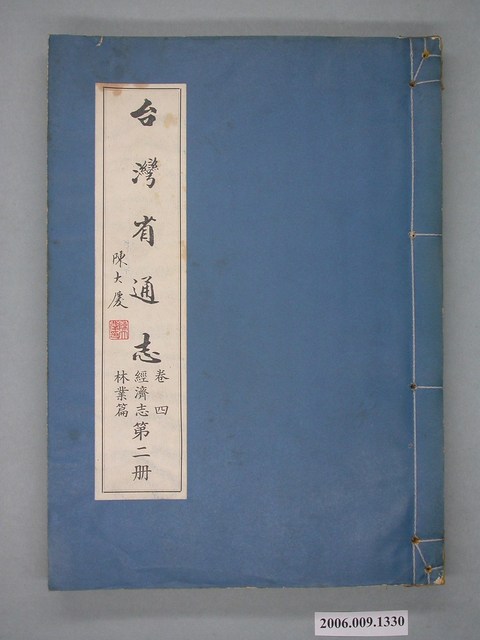 台灣省通志
卷四
經濟志
林業篇
第二册
陳大慶
2006.009.1330